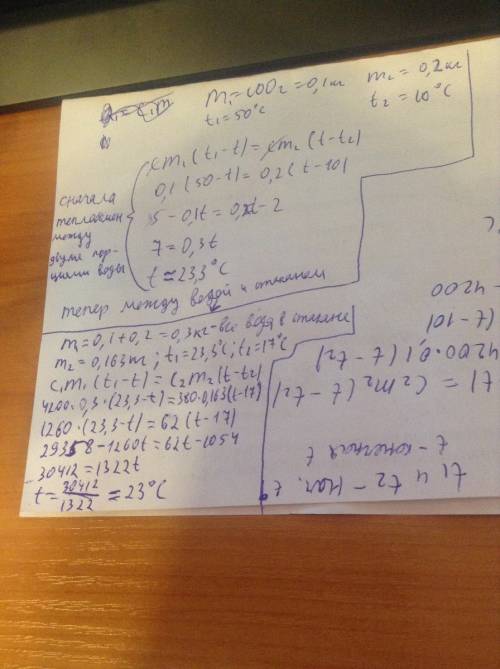 m₁ = 100г = 0,1 кг
t₁ = 50°C
m₂ = 0,2 кг
t₂ = 10°C
сначала
теплообмен
между
двумя пор-
циями воды
cm₁(t₁-t) = cm₂(t-t₂)
0,1(50-t) = 0,2(t-10)
5-0,1t = 0,2t-2
7 = 0,3t
t ≈ 23,3°C
тепер между водой и стаканом
m₁ = 0,1+0,2 = 0,3 кг - вся вода в стакане
m₂ = 0,163 кг; t₁ = 23,3°C; t₂ = 17°C
c₁m₁(t₁-t) = c₂m₂(t-t₂)
4200·0,3·(23,3-t) = 380·0,163(t-17)
1260·(23,3-t) = 62(t-17)
29358-1260t = 62t-1054
30412 = 1322t
t = 30412/1322 ≈ 23°C
t₁ и t₂ - нач. t
t - конечная t
t) = c₂m₂(t-t₂)
4200·0,1(t-t₂)
(t-10)
-4200